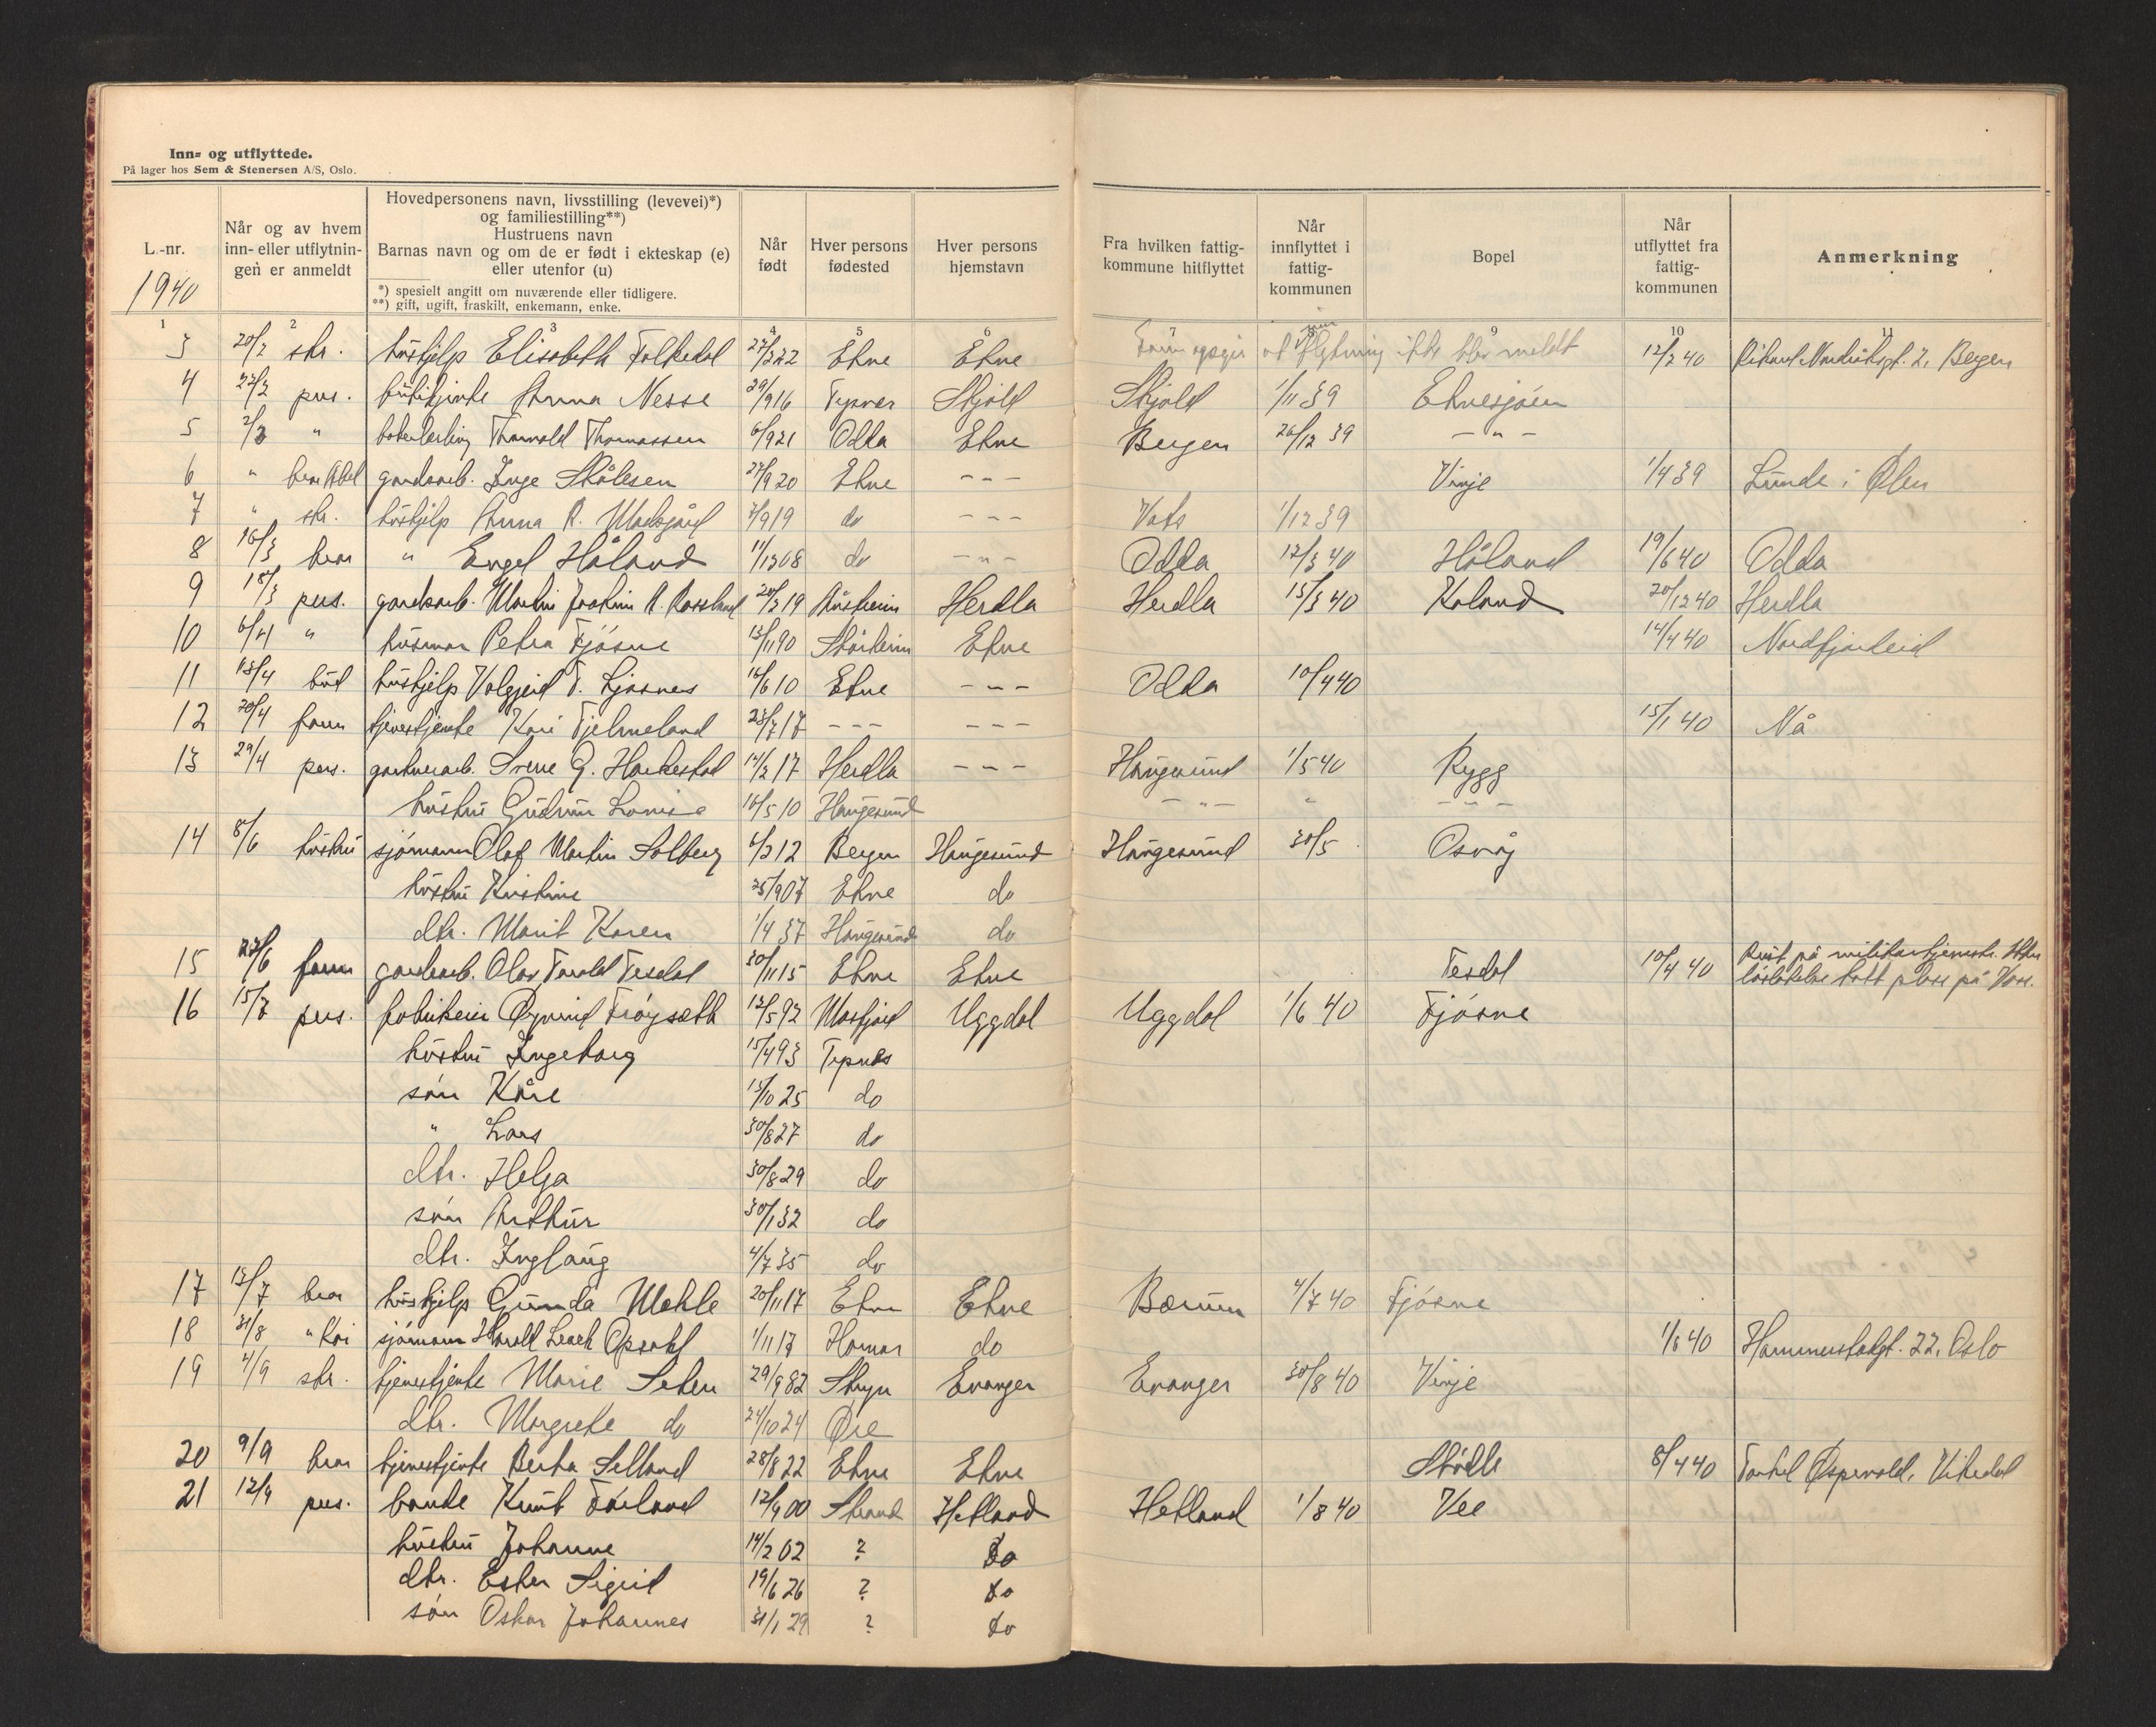 Inn- og utflyttede.
På lager hos Sem & Stenersen A/S, Oslo.
L.-nr.
1940
Når og av hvem
inn- eller utflytnin-
gen er anmeldt
Hovedpersonens navn, livsstilling (levevei)*)
og familiestilling**)
Hustruens navn
Barnas navn og om de er født i ekteskap (e)
eller utenfor (u)
*) spesielt angitt om nuværende eller tidligere.
**) gift, ugift, fraskilt, enkemann, enke.
Når
født
Hver persons
fødested
Hver persons
hjemstavn
Fra hvilken fattig-
kommune hitflyttet
Når
innflyttet i
fattig-
kommunen
Bopel
Når
utflyttet fra
fattig-
kommunen
Anmerkning
1 2 3 4 5 6 7 9 10 11
3 20/2 skr. hushjelp Elisabeth Folkedal 27/2 22 Etne Etne at flytning ikke blev meldt 12/2 40 2, Bergen
4 22/2 pers. Anna Nesse 29/9 16 Tysvær Skjold Skjold 1/11 39 Etnesjøen
5 2/3 " Thorvald Thomassen 6/9 21 Odda Etne Bergen 26/12 39 - " -
6 " gardsarb. Inge Ståлesen 27/9 20 Etne - - - Vinje 1/4 39 Lunde i Ølen
7 " skr. hushjelp Anna R. 7/9 19 do - - - Vats 1/12 39
8 16/3 bror " Engel Håland 11/12 08 do - " - Odda 12/3 40 Håland 19/6 40 Odda
9 15/3 pers. gardsarb. Martin Joakim R. Rossland 20/3 19 Herdla Herdla 15/3 40 Koland 20/12 40 Herdla
10 6/4 " husmor Petra Fjøsne 13/11 90 Etne 14/4 40 Nordfjordeid
11 13/4 bud hushjelp Valgjerd T. 16/6 10 Etne - " - Odda 10/4 40
12 20/4 faren tjenestjente Kari Fjelmeland 23/7 17 - - - - - - 15/1 40 Nå
13 29/4 pers. gartnerarb. Sverre G. Harkestad 14/2 17 Herdla - " - Haugesund 1/5 40 Rygg
hustru Gudrun Lovise 10/5 10 Haugesund - " - " - " -
14 8/6 hustru sjømann Olaf Martin Solberg 6/2 12 Bergen Haugesund Haugesund 30/5 Osvåg
hustru Kristine 25/9 07 Etne do
dtr. Marit Karen 1/4 37 Haugesund do
15 27/6 faren gardsarb. Olav Torvald Tesdal 30/11 15 Etne Etne Tesdal 10/4 40 Reist på militærtjeneste. Etter
tatt plass på Voss.
16 15/7 pers. fabrikeier Øyvind Frøysæth 12/5 92 Masfjord Uggdal Uggdal 1/6 40 Fjøsne
hustru Ingeborg 15/4 93 Tysnes
søn Kåre 13/10 25 do
" Lars 30/8 27 do
dtr. Helga 30/8 29 do
søn Arthur 30/1 32 do
dtr. Inglaug 4/7 35 do
17 13/7 bror hushjelp Gunda Mehle 20/11 17 Etne Etne Bærum 4/7 40 Fjøsne
18 31/8 " sjømann Harald Opsahl 1/11 17 Hamar do 1/6 40 Hammerstadgt. 22, Oslo
19 4/9 skr. tjenestjente Marie Seten 29/9 82 Stryn Evanger Evanger 30/8 40 Vinje
dtr. Margrete do 24/10 24 Øre
20 9/9 bror tjenestjente Berta Selland 28/8 22 Etne Etne Stødle 8/4 40 Torkel Øspevold, Vikedal
21 12/9 pers. bonde KnutFørland 12/9 00 Strand Hetland Hetland 1/8 40 Vee
hustru Johanne 14/2 02 ? do
dtr. Ester Sigrid 19/6 26 ? do
søn Oskar Johannes 31/1 29 ? do